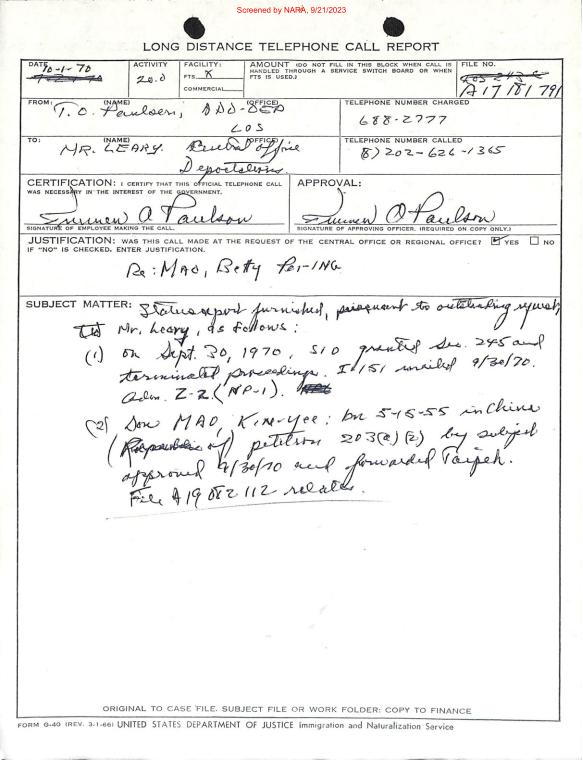 Screened by NARA, 9/21/2023
LONG DISTANCE TELEPHONE CALL REPORT
DATE 10-1-70
ACTIVITY 20.0
FACILITY: FTS X COMMERCIAL
AMOUNT (DO NOT FILL IN THIS BLOCK WHEN CALL IS HANDLED THROUGH A SERVICE SWITCH BOARD OR WHEN FTS IS USED.)
FILE NO. A17 181 791
FROM: (NAME) T. O. Paulsen, (OFFICE) ADD-DEP
LOS
TELEPHONE NUMBER CHARGED
688-2777
TO: (NAME) MR. LEARY. (OFFICE) Central Office
Deportations
TELEPHONE NUMBER CALLED
8) 202-626-1365
CERTIFICATION: I CERTIFY THAT THIS OFFICIAL TELEPHONE CALL WAS NECESSARY IN THE INTEREST OF THE GOVERNMENT.
SIGNATURE OF EMPLOYEE MAKING THE CALL.
APPROVAL:
SIGNATURE OF APPROVING OFFICER. (REQUIRED ON COPY ONLY.)
JUSTIFICATION: WAS THIS CALL MADE AT THE REQUEST OF THE CENTRAL OFFICE OR REGIONAL OFFICE? YES NO
IF "NO" IS CHECKED, ENTER JUSTIFICATION.
Re: MAO, Betty Pei-ING
SUBJECT MATTER: Status report furnished, pursuant to outstanding request,
Mr. Leary, as follows:
(1) on Sept. 30, 1970, SIO granted Sec. 245 and
terminated proceedings. I 151 mailed 9/30/70.
Adm. Z-2 (NP-1).
(2) Son MAO, Kim-Yee: bn 5-15-55 in China
petition 203(a)(2) by subject
approved 9/30/70 and forwarded Taipeh.
File A19 082 112 relates.
ORIGINAL TO CASE FILE, SUBJECT FILE OR WORK FOLDER: COPY TO FINANCE
FORM G-40 (REV. 3-1-66) UNITED STATES DEPARTMENT OF JUSTICE Immigration and Naturalization Service